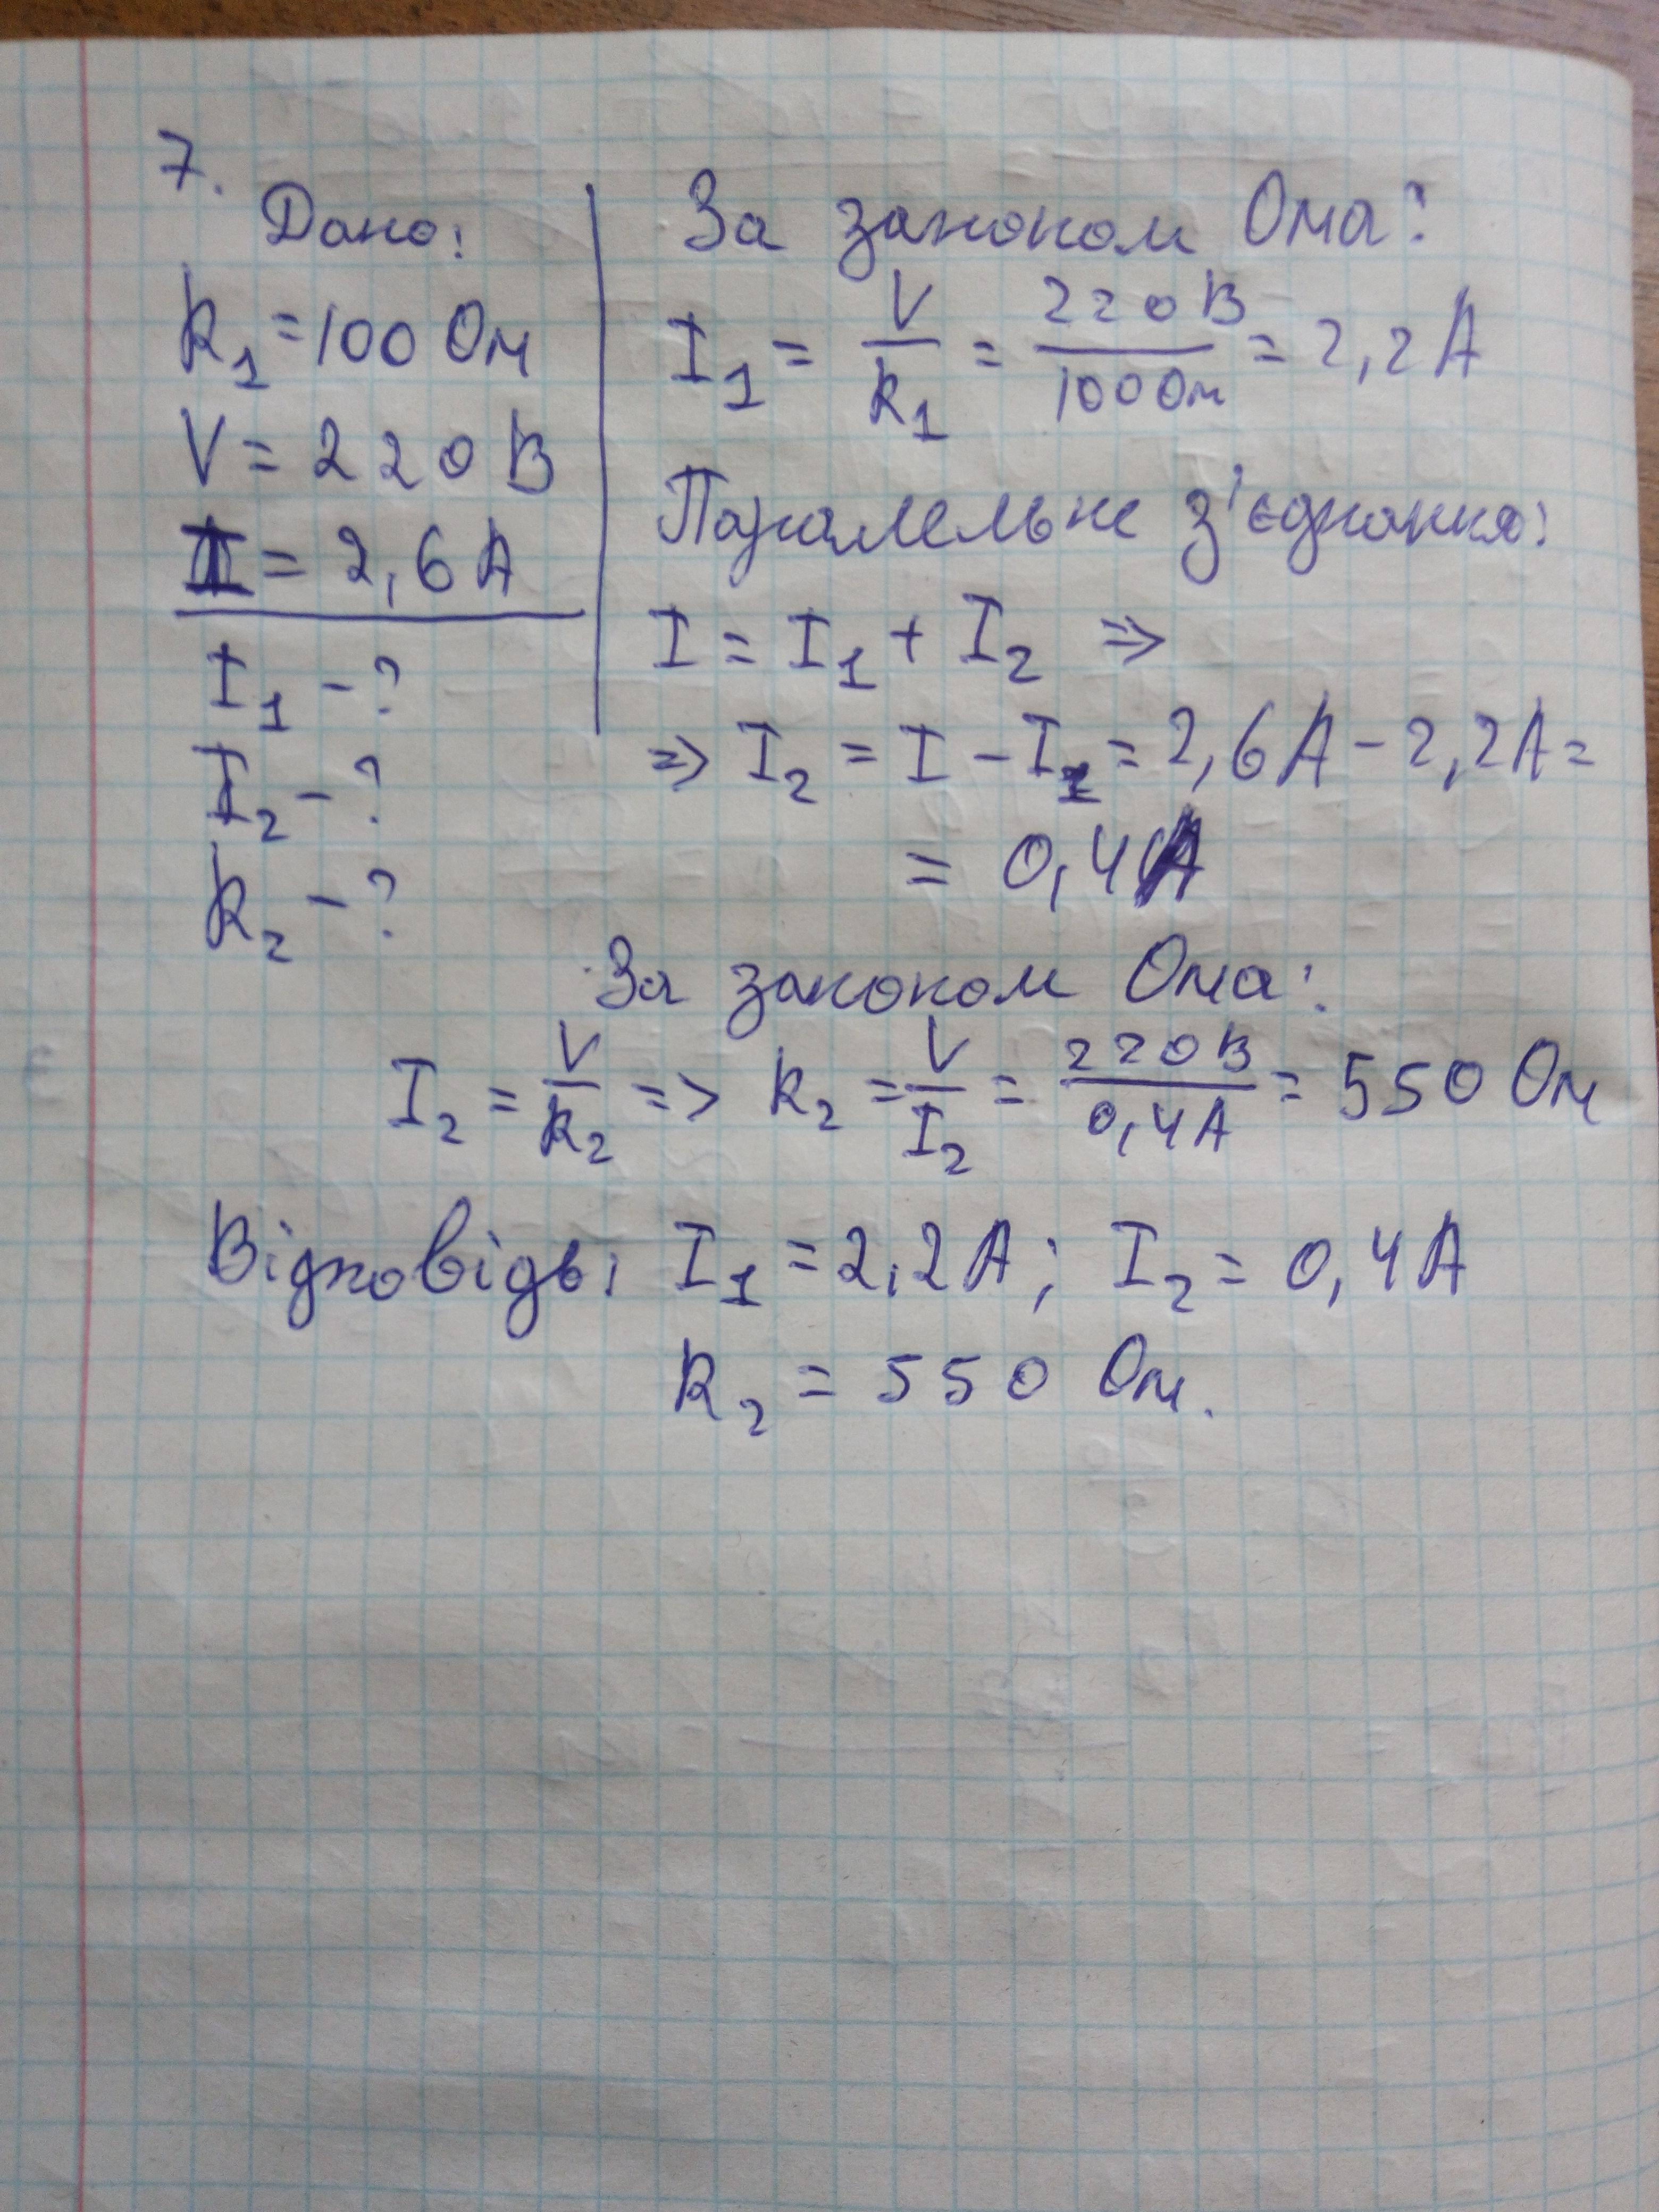 7.
Дано:
R₁ = 100 Ом
V = 220 В
I = 2,6 А
I₁ - ?
I₂ - ?
R₂ - ?
За законом Ома:
I₁ = V/R₁ = 220 В/100 Ом = 2,2 А
Паралельне з'єднання:
I = I₁ + I₂ ⇒
⇒ I₂ = I - I₁ = 2,6 А - 2,2 А =
= 0,4 А
За законом Ома:
I₂ = V/R₂ => R₂ = V/I₂ = 220 В/0,4 А = 550 Ом
Відповідь: I₁ = 2,2 А; I₂ = 0,4 А
R₂ = 550 Ом.